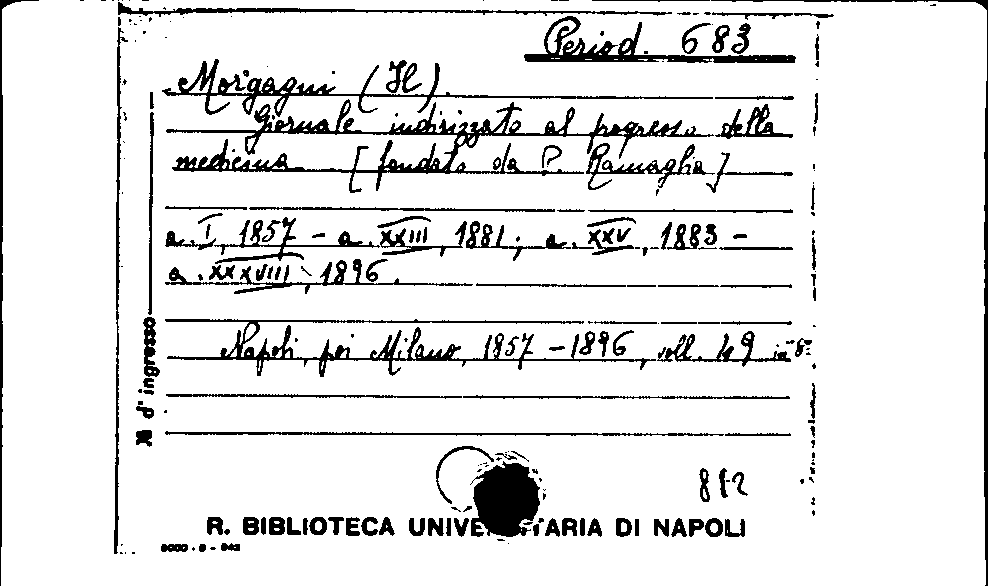 Period. 683
Morgagni (Il).
Giornale indirizzato al progresso della
medicina [fondato da P. Ramaglia]
a. I, 1857 - a. XXIII, 1881; a. XXV, 1883 -
a. XXXVIII, 1896.
Napoli, poi Milano, 1857 - 1896, voll. 49 in 8°
N. d'ingresso
812
R. BIBLIOTECA UNIVERSITARIA DI NAPOLI